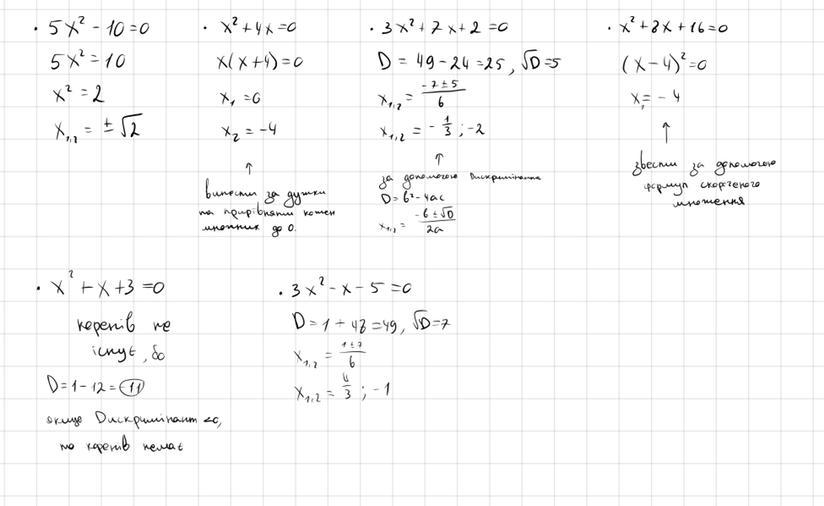 · 5x² - 10 = 0
5x² = 10
x² = 2
x₁,₂ = ±√2
· x² + 4x = 0
x(x+4) = 0
x₁ = 0
x₂ = -4
↑
винести за дужки
та прирівняти кожен
множник до 0.
· 3x² + 7x + 2 = 0
D = 49 - 24 = 25, √D = 5
x₁,₂ = (-7 ± 5)/6
x₁,₂ = -1/3 ; -2
↑
за допомогою Дискримінанта
D = b² - 4ac
x₁,₂ = (-b ± √D)/2a
· x² + 8x + 16 = 0
(x - 4)² = 0
x₁ = -4
↑
звести за допомогою
формул скороченого
множення
· x² + x + 3 = 0
коренів не
існує, бо
D = 1 - 12 = -11
якщо Дискримінант <0,
то коренів немає
· 3x² - x - 5 = 0
D = 1 + 48 = 49, √D = 7
x₁,₂ = (1 ± 7)/6
x₁,₂ = 4/3 ; -1